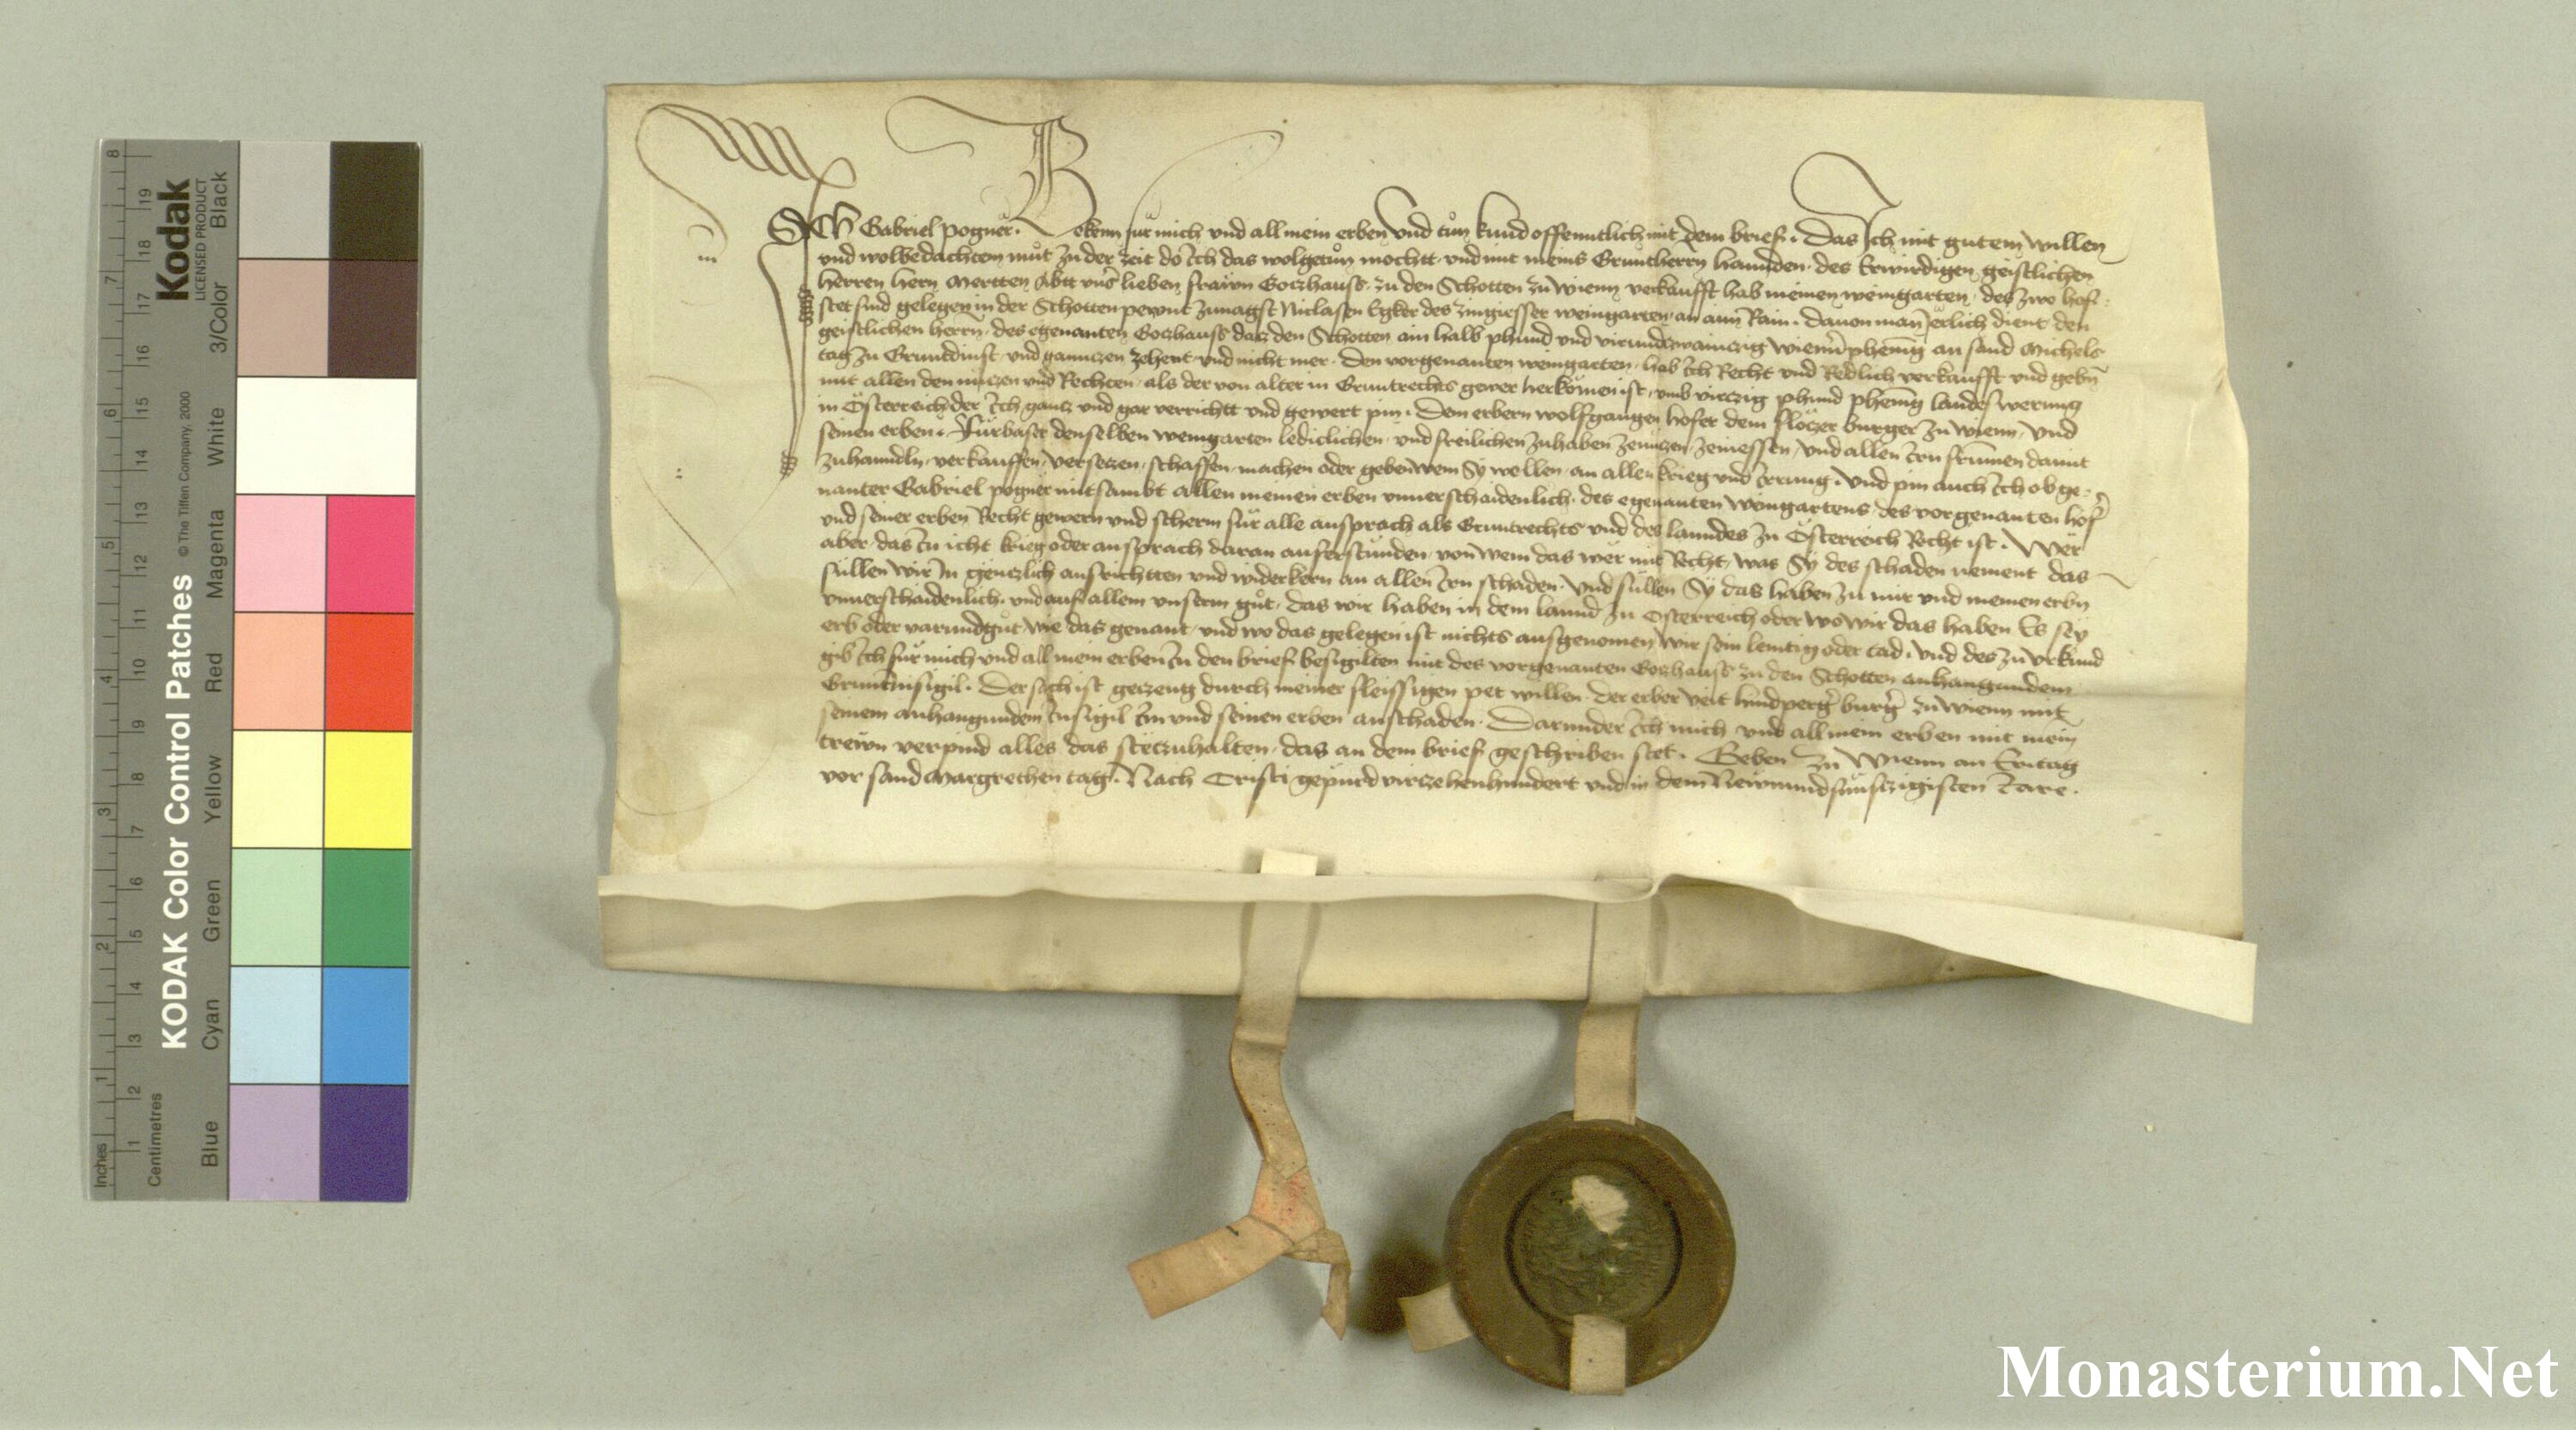 ICh Gabriel pogner. Bekenn für mich und all mein erben Und tůn kund offenntlich mit dem brief. Das Ich mit gutem willen
und wolbedachtem můt zu der zeit do Ich das wolgetůn mochtt. und mit meins Gruntherrn hannden. des Erwirdigen geistlichen
herren hern Mertten Abtt vnsˀ lieben frawn Goczhauss zu den Schotten zu wienn verkaufft hab meinen weingarten. des zwo hof-
stet sind gelegen in der Schotten pewnt zunagst Niclasen Egker des zingiesser weingarten an aim Rain. Dauon man Ierlich dient den
geistlichen herrn. des egenanten Goczhauss dacz den Schotten ain halb phund und virundzwainczig wienñ phenig an sand Michels
tag zu Gruntdinst. und gannczen zehent und nicht mer. Den vorgenanten weingarten. hab Ich Recht und Redlich verkaufft und gebn
mit allen den nuczen und Rechten. als der von alter in Gruntrechts gewer herkomen ist. umb virczig phund phenig landeswerung
in Österreich der Ich gancz und gar verrichtt und gewert pin. Dem erbern wolfgangen hofer dem flöczer burger zu wienn. Und
seinen erben. Fürbaser denselben weingarten lediclichen und freilichen zuhaben zenuczen zeniessen. Und allen Irn frumen damit
zuhanndln. verkauffen. versetzen. schaffen. machen oder geben wem Sy wellen an allen krieg und Irrung. Und pin auch Ich obge-
nanter Gabriel pogner mitsambt allen meinen erben vnuerschaidenlich. des egenanten weingartens des vorgenanten hofˀ
und seiner erben Recht gewern und scherm für alle ansprach als Gruntrechts und des lanndes zu Österreich Recht ist. Wer
aber das In icht krieg oder ansprach daran auferstünden. von wem das wer mit Recht. was Sy des schaden nement das
süllen wir In genczlich ausrichtten und widerkern an allen Irn schaden. Und süllen Sy das haben zu mir und meinen erbn
vnuerschaidenlich. und auf allem unserm gůt. das wir haben in dem lannd zu Osterreich oder wo wir das haben Es sey
erb oder varundgůt wie das genant. und wo das gelegen ist nichts ausgenomen wir sein lemtig oder tod. Und des zu vrkund
gib Ich für mich und all mein erben In den brief besigilten mit des vorgenanten Goczhauss zu den Schotten anhangundem
Gruntinsigil. Der sach ist geczeug durch meiner fleissigen pet willen. der erber veit hindpergˀ burgˀ zu wienn mit
seinem anhangundem Insigil Im und seinen erben anschaden. Darunder Ich mich und all mein erben mit mein
trewn verpind alles das stetzuhalten. das an dem brief geschriben stet. Geben zu Wienn an Eritag
vor sand Margrethen tag. Nach Cristi gepurd virczehenhundert und in dem Newnundfünfczigisten Iare.
KODAK Color Control Patches © The Tiffen Company, 2000
Kodak
LICENSED PRODUCT
Black
3/Color
White
Magenta
Red
Yellow
Green
Cyan
Blue
Inches 1 2 3 4 5 6 7 8
Centimetres 1 2 3 4 5 6 7 8 9 10 11 12 13 14 15 16 17 18 19
Monasterium.Net